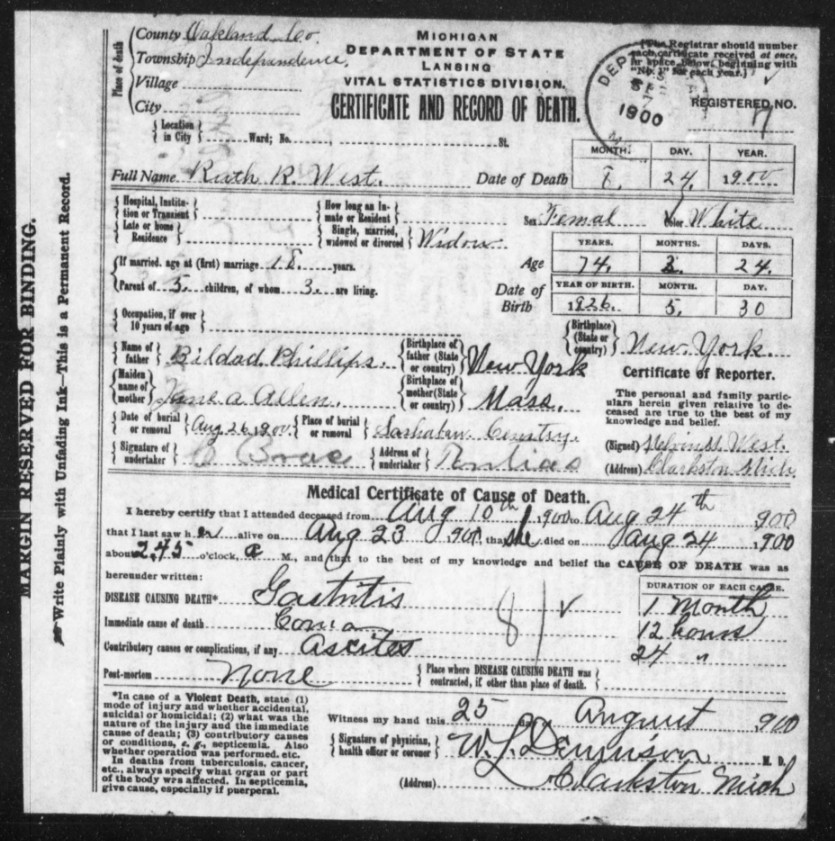 MARGIN RESERVED FOR BINDING.
Write Plainly with Unfading Ink—This is a Permanent Record.
Place of death
County Oakland Co.
Township Independence.
Village
City
MICHIGAN
DEPARTMENT OF STATE
LANSING
VITAL STATISTICS DIVISION.
CERTIFICATE AND RECORD OF DEATH.
[The Registrar should number each certificate received at once, in space below, beginning with "No. 1" for each year.]
1900
REGISTERED NO.
Location in City Ward; No. St.
Full Name Ruth R. West.
Date of Death MONTH. DAY. YEAR.
8. 24 1900
Hospital, Institution or Transient
How long an Inmate or Resident
Sex Femal Color White
Late or home Residence
Single, married, widowed or divorced Widow
Age YEARS. MONTHS. DAYS.
74. 24.
If married, age at (first) marriage 18 years.
Parent of 5 children, of whom 3 are living.
Date of Birth YEAR OF BIRTH. MONTH. DAY.
1826. 5. 30
Occupation, if over 10 years of age
Birthplace (State or country) New York.
Name of father Bildad Phillips.
Birthplace of father (State or country) New York
Maiden name of mother Jane A Allen.
Birthplace of mother (State or country) Mass.
Certificate of Reporter.
The personal and family particulars herein given relative to deceased are true to the best of my knowledge and belief.
Date of burial or removal Aug 26 1900
Place of burial or removal
(Signed) West.
Signature of undertaker
Address of undertaker
(Address) Clarkston Mich.
Medical Certificate of Cause of Death.
I hereby certify that I attended deceased from Aug 10th 1900 to Aug 24th 1900
that I last saw her alive on Aug 23 1900 that she died on Aug 24 1900
about 2.45 o'clock, a M., and that to the best of my knowledge and belief the CAUSE OF DEATH was as
hereunder written:
DURATION OF EACH CAUSE.
DISEASE CAUSING DEATH* Gastritis 1 Month
Immediate cause of death Coma 12 hours
Contributory causes or complications, if any Ascites 24 "
81
Post-mortem None
Place where DISEASE CAUSING DEATH was contracted, if other than place of death.
*In case of a Violent Death, state (1)
mode of injury and whether accidental,
suicidal or homicidal; (2) what was the
nature of the injury and the immediate
cause of death; (3) contributory causes
or conditions, e. g., septicemia. Also
whether operation was performed, etc.
In deaths from tuberculosis, cancer,
etc., always specify what organ or part
of the body was affected. In septicemia,
give cause, especially if puerperal.
Witness my hand this 25 day August 1900
Signature of physician, health officer or coroner W. L. Dennison M. D.
(Address) Clarkston Mich